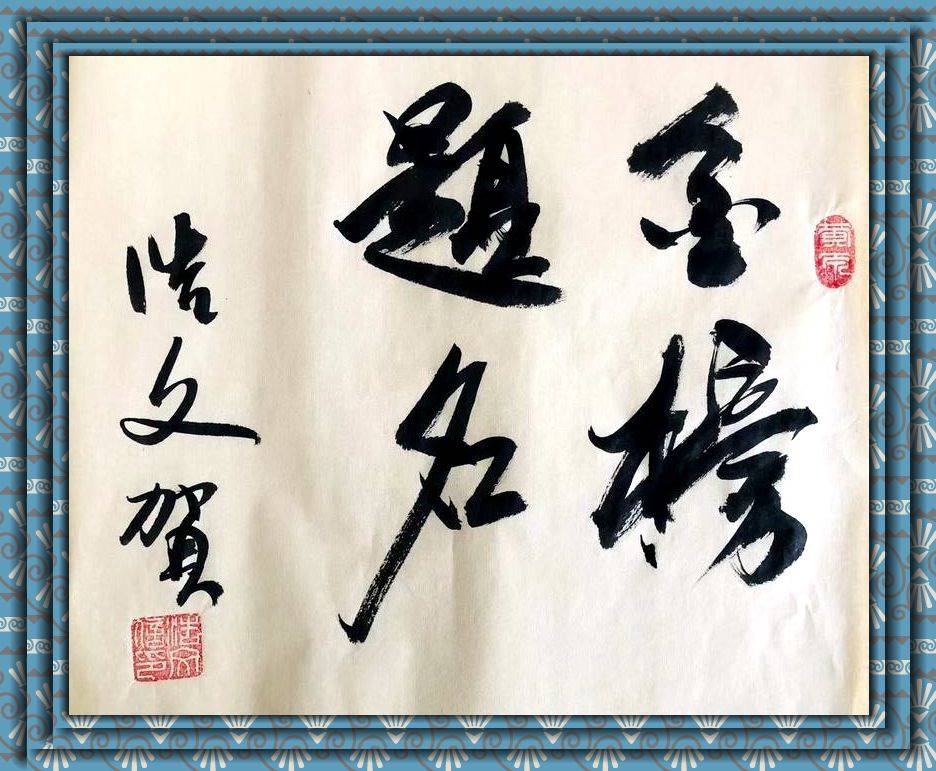 金榜
題名
浩文賀